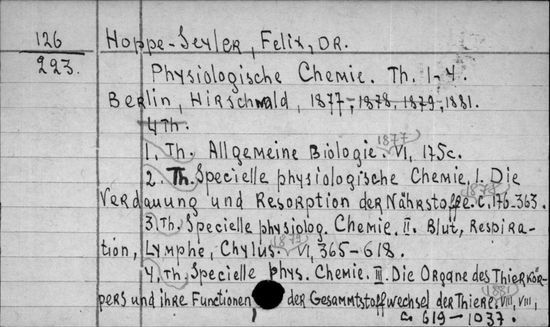 126
223.
Hoppe-Seyler, Felix, Dr.
Physiologische Chemie. Th. 1-4.
Berlin, Hirschwald, 1877-, 1878, 1879, 1881.
4 Th.
1. Th. Allgemeine Biologie. 1877 VI, 175 c.
2. Th. Specielle physiologische Chemie. I. Die
Verdauung und Resorption der Nährstoffe. 1878 c. 176-363.
3. Th. Specielle physiolog. Chemie. II. Blut, Respira-
tion, Lymphe, Chylus. 1879 VI, 365-618.
4. Th. Specielle phys. Chemie. III. Die Organe des Thierkör-
pers und ihre Functionen, der Gesammtstoffwechsel der Thiere. 1881 VIII,
c. 619-1037.